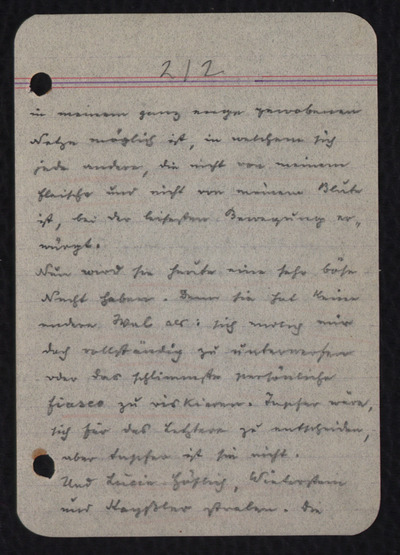 2/2
in meinem ganz enge gewobenen
Netze möglich ist, in welchem sich
jede andere, die nicht von meinem
Fleische und nicht von meinem Blute
ist, bei der leisesten Bewegung er-
würgt.
Nun wird sie heute eine sehr böse
Nacht haben. Denn sie hat keine
andere Wal als: sich mir
doch vollständig zu unterwerfen
oder das schlimmste persönliche
Fiasco zu riskieren. Tapfer wäre,
sich für das Letztere zu entscheiden,
aber tapfer ist sie nicht.
Und Lucie Höflich, Winterstein
und Kayßler strahlen. Die